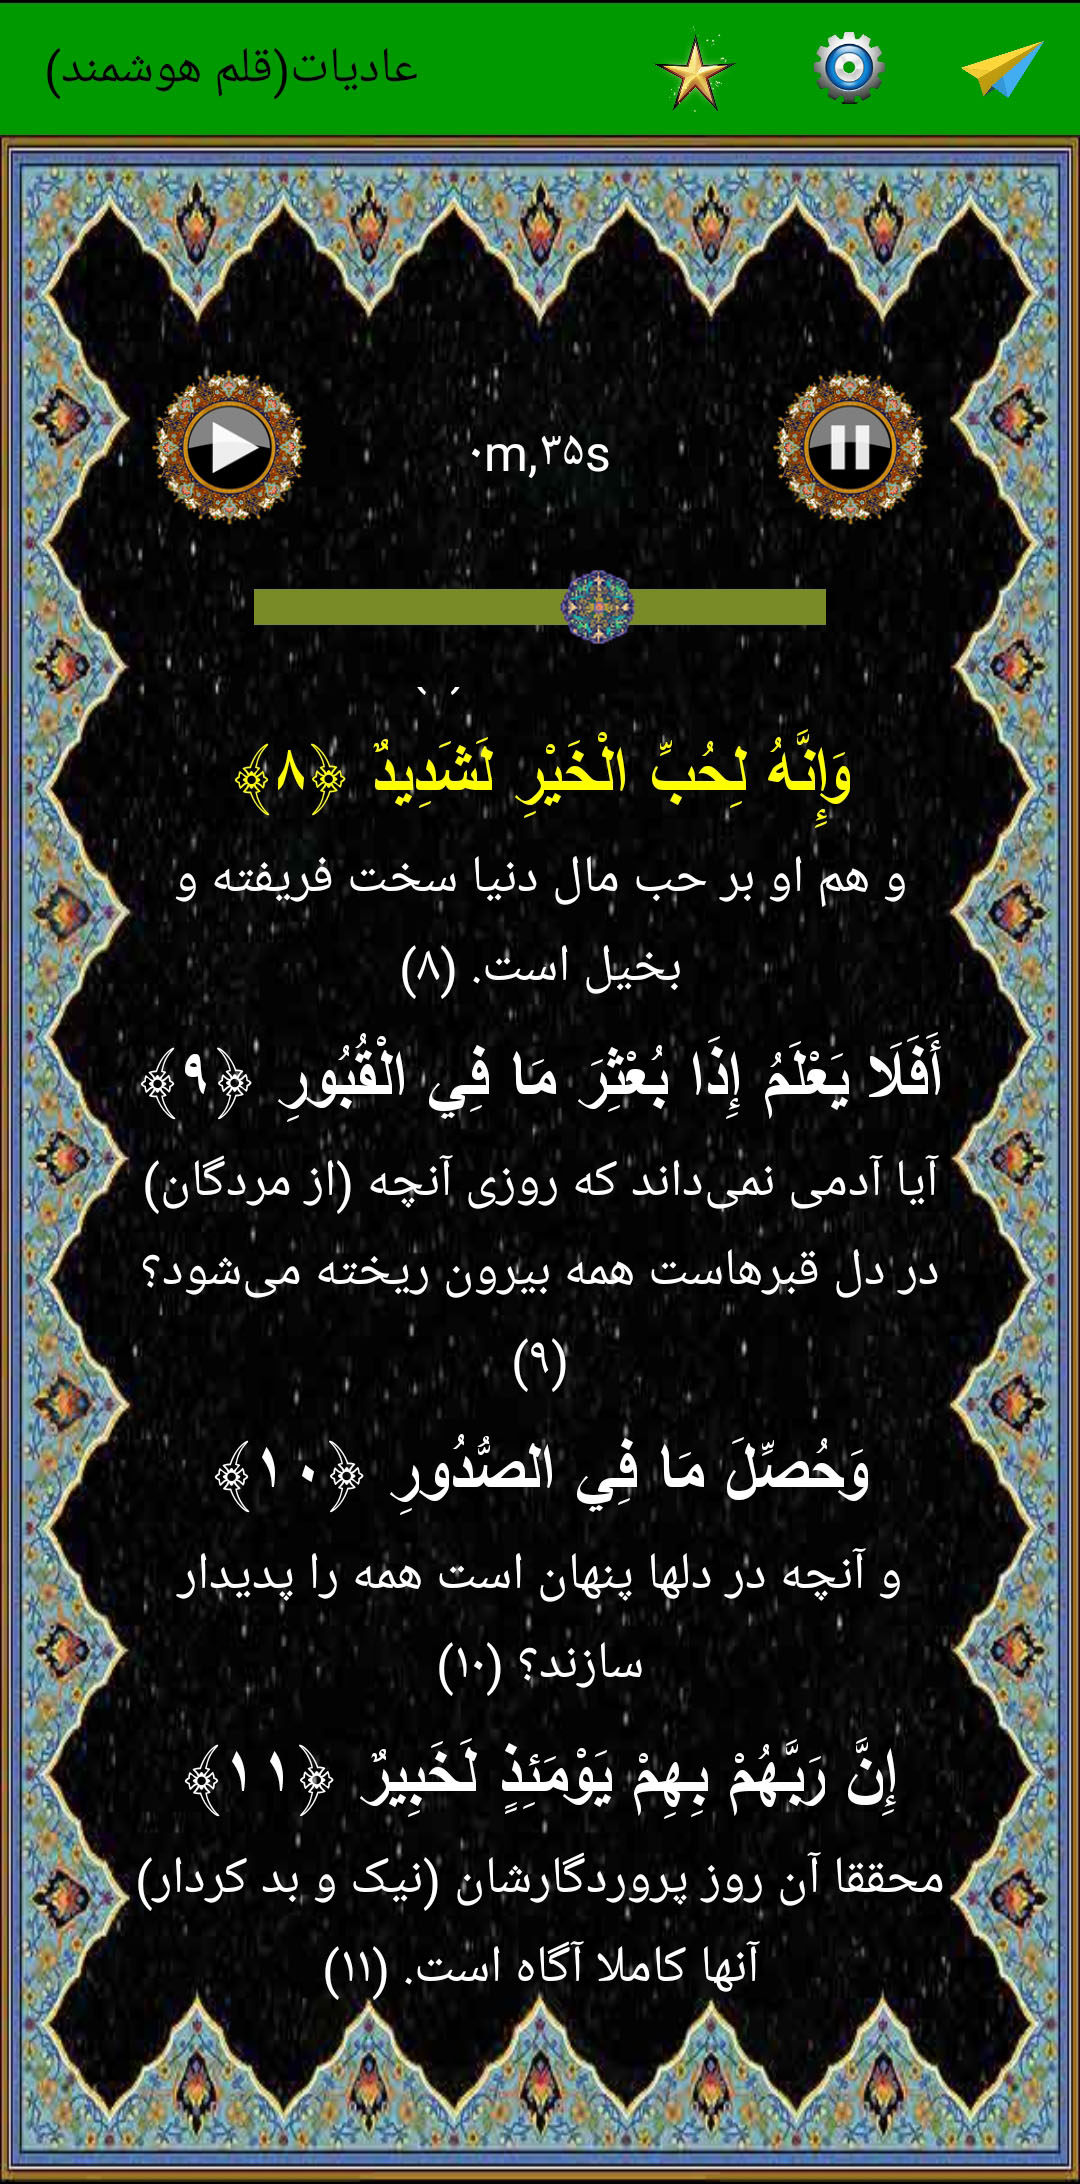 عادیات(قلم هوشمند)
۰m,۳۵s
وَإِنَّهُ لِحُبِّ الْخَيْرِ لَشَدِيدٌ ﴿۸﴾
و هم او بر حب مال دنیا سخت فریفته و
بخیل است. (۸)
أَفَلَا يَعْلَمُ إِذَا بُعْثِرَ مَا فِي الْقُبُورِ ﴿۹﴾
آیا آدمی نمی‌داند که روزی آنچه (از مردگان)
در دل قبرهاست همه بیرون ریخته می‌شود؟
(۹)
وَحُصِّلَ مَا فِي الصُّدُورِ ﴿۱۰﴾
و آنچه در دلها پنهان است همه را پدیدار
سازند؟ (۱۰)
إِنَّ رَبَّهُمْ بِهِمْ يَوْمَئِذٍ لَخَبِيرٌ ﴿۱۱﴾
محققا آن روز پروردگارشان (نیک و بد کردار)
آنها کاملا آگاه است. (۱۱)